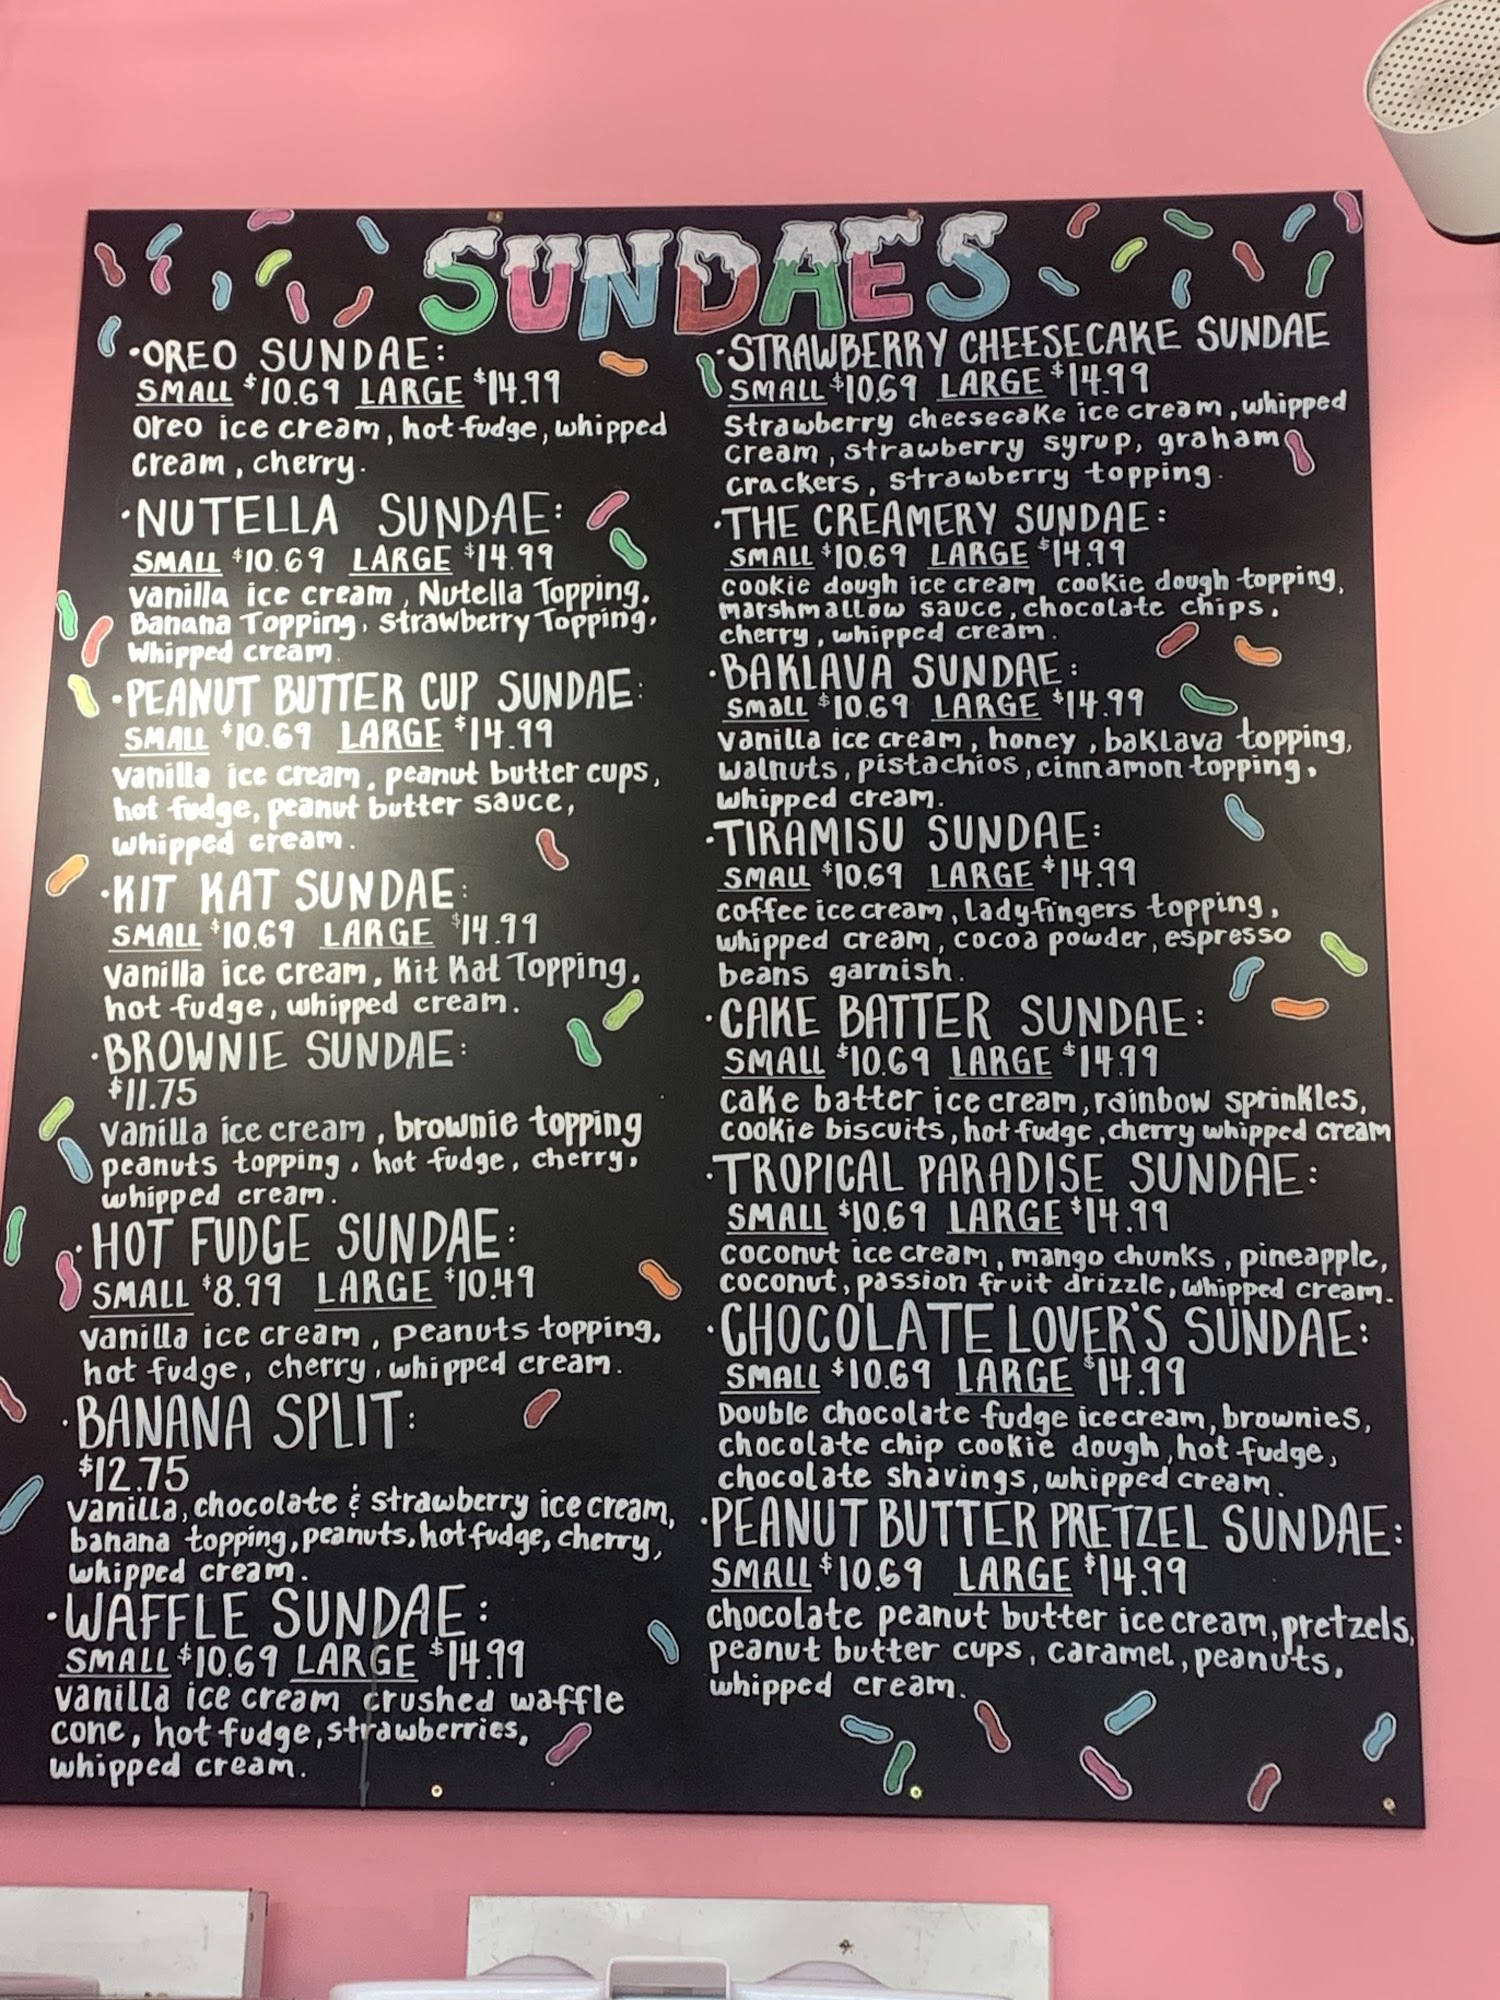 SUNDAES
·OREO SUNDAE:
SMALL $10.69 LARGE $14.99
Oreo ice cream, hot fudge, whipped
cream, cherry.
·NUTELLA SUNDAE:
SMALL $10.69 LARGE $14.99
vanilla ice cream, Nutella Topping,
Banana Topping, Strawberry Topping,
Whipped cream.
·PEANUT BUTTER CUP SUNDAE:
SMALL $10.69 LARGE $14.99
vanilla ice cream, peanut butter cups,
hot fudge, peanut butter sauce,
whipped cream.
·KIT KAT SUNDAE:
SMALL $10.69 LARGE $14.99
vanilla ice cream, Kit Kat Topping,
hot fudge, whipped cream.
·BROWNIE SUNDAE:
$11.75
vanilla ice cream, brownie topping
peanuts topping, hot fudge, cherry,
whipped cream.
·HOT FUDGE SUNDAE:
SMALL $8.99 LARGE $10.49
vanilla ice cream, peanuts topping,
hot fudge, cherry, whipped cream.
·BANANA SPLIT:
$12.75
vanilla, chocolate & strawberry ice cream,
banana topping, peanuts, hot fudge, cherry,
whipped cream.
·WAFFLE SUNDAE:
SMALL $10.69 LARGE $14.99
vanilla ice cream crushed waffle
cone, hot fudge, strawberries,
whipped cream.
·STRAWBERRY CHEESECAKE SUNDAE
SMALL $10.69 LARGE $14.99
Strawberry cheesecake ice cream, whipped
cream, strawberry syrup, graham
crackers, strawberry topping.
·THE CREAMERY SUNDAE:
SMALL $10.69 LARGE $14.99
cookie dough ice cream, cookie dough topping,
marshmallow sauce, chocolate chips,
cherry, whipped cream.
·BAKLAVA SUNDAE:
Small $10.69 LARGE $14.99
vanilla ice cream, honey, baklava topping,
walnuts, pistachios, cinnamon topping,
whipped cream.
·TIRAMISU SUNDAE:
SMALL $10.69 LARGE $14.99
coffee ice cream, ladyfingers topping,
whipped cream, cocoa powder, espresso
beans garnish.
·CAKE BATTER SUNDAE:
SMALL $10.69 LARGE $14.99
cake batter ice cream, rainbow sprinkles,
cookie biscuits, hot fudge, cherry whipped cream
·TROPICAL PARADISE SUNDAE:
SMALL $10.69 LARGE $14.99
coconut ice cream, mango chunks, pineapple,
coconut, passion fruit drizzle, whipped cream.
·CHOCOLATE LOVER'S SUNDAE:
SMALL $10.69 LARGE $14.99
Double chocolate fudge ice cream, brownies,
chocolate chip cookie dough, hot fudge,
chocolate shavings, whipped cream.
·PEANUT BUTTER PRETZEL SUNDAE:
SMALL $10.69 LARGE $14.99
chocolate peanut butter ice cream, pretzels,
peanut butter cups, caramel, peanuts,
whipped cream.